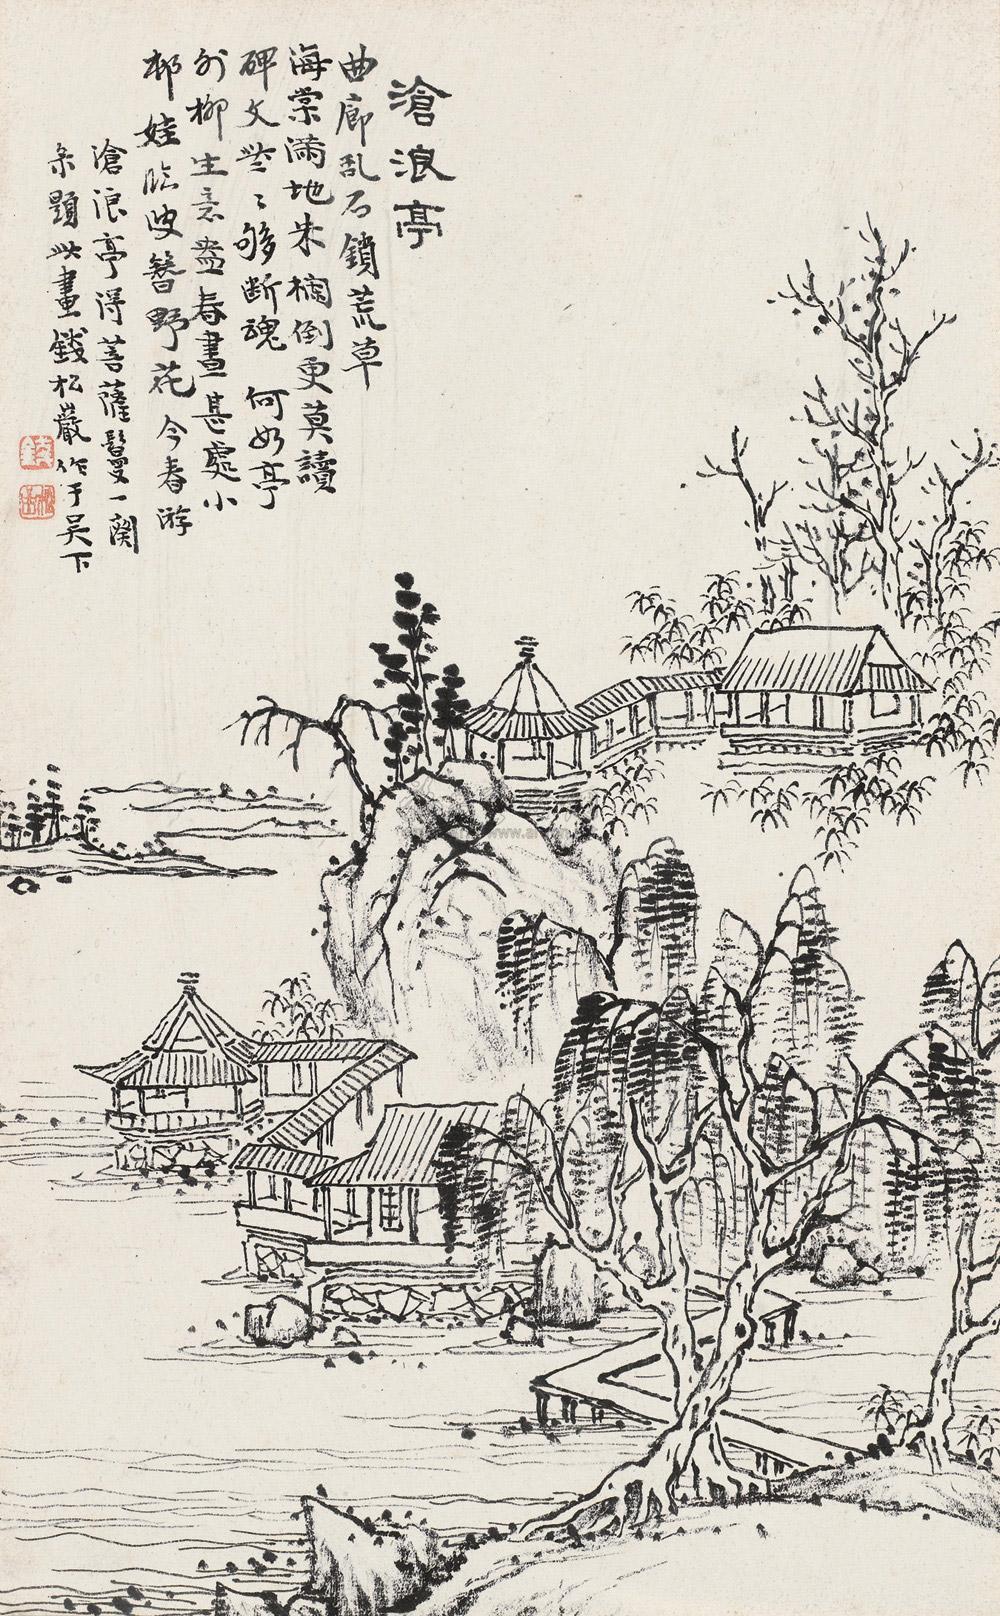 滄浪亭
曲廊乱石鎖荒草
海棠滿地朱欄倒更莫讀
碑文᠁够断魂 何如亭
外柳生意盎春晝甚處小
邨娃臨波簪野花 今春游
滄浪亭得菩薩鬘一闋
希題此畫錢松嵒作于吴下